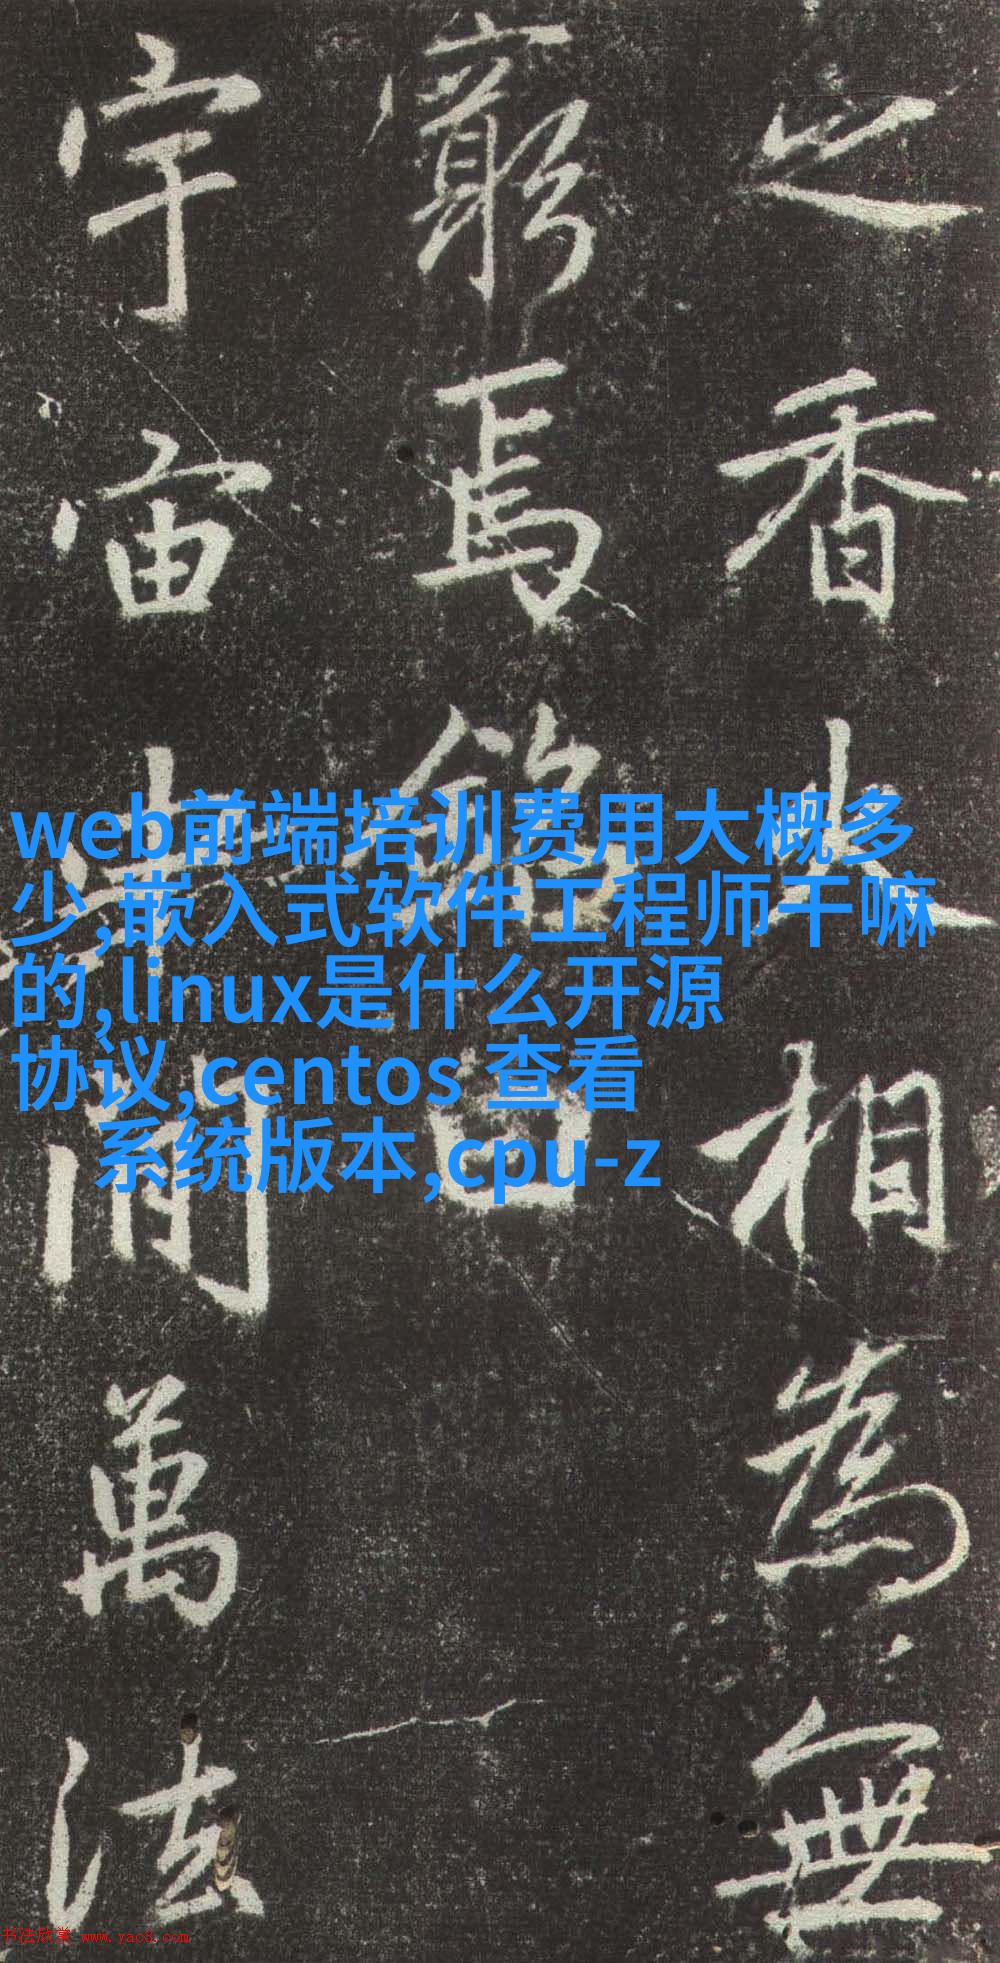 之香火相為無
窮焉銘曰
宇宙間萬法
web前端培训费用大概多
少,嵌入式软件工程师干嘛
的,linux是什么开源
协议,centos 查看
系统版本,cpu-z
书法欣赏 www.yac8.com